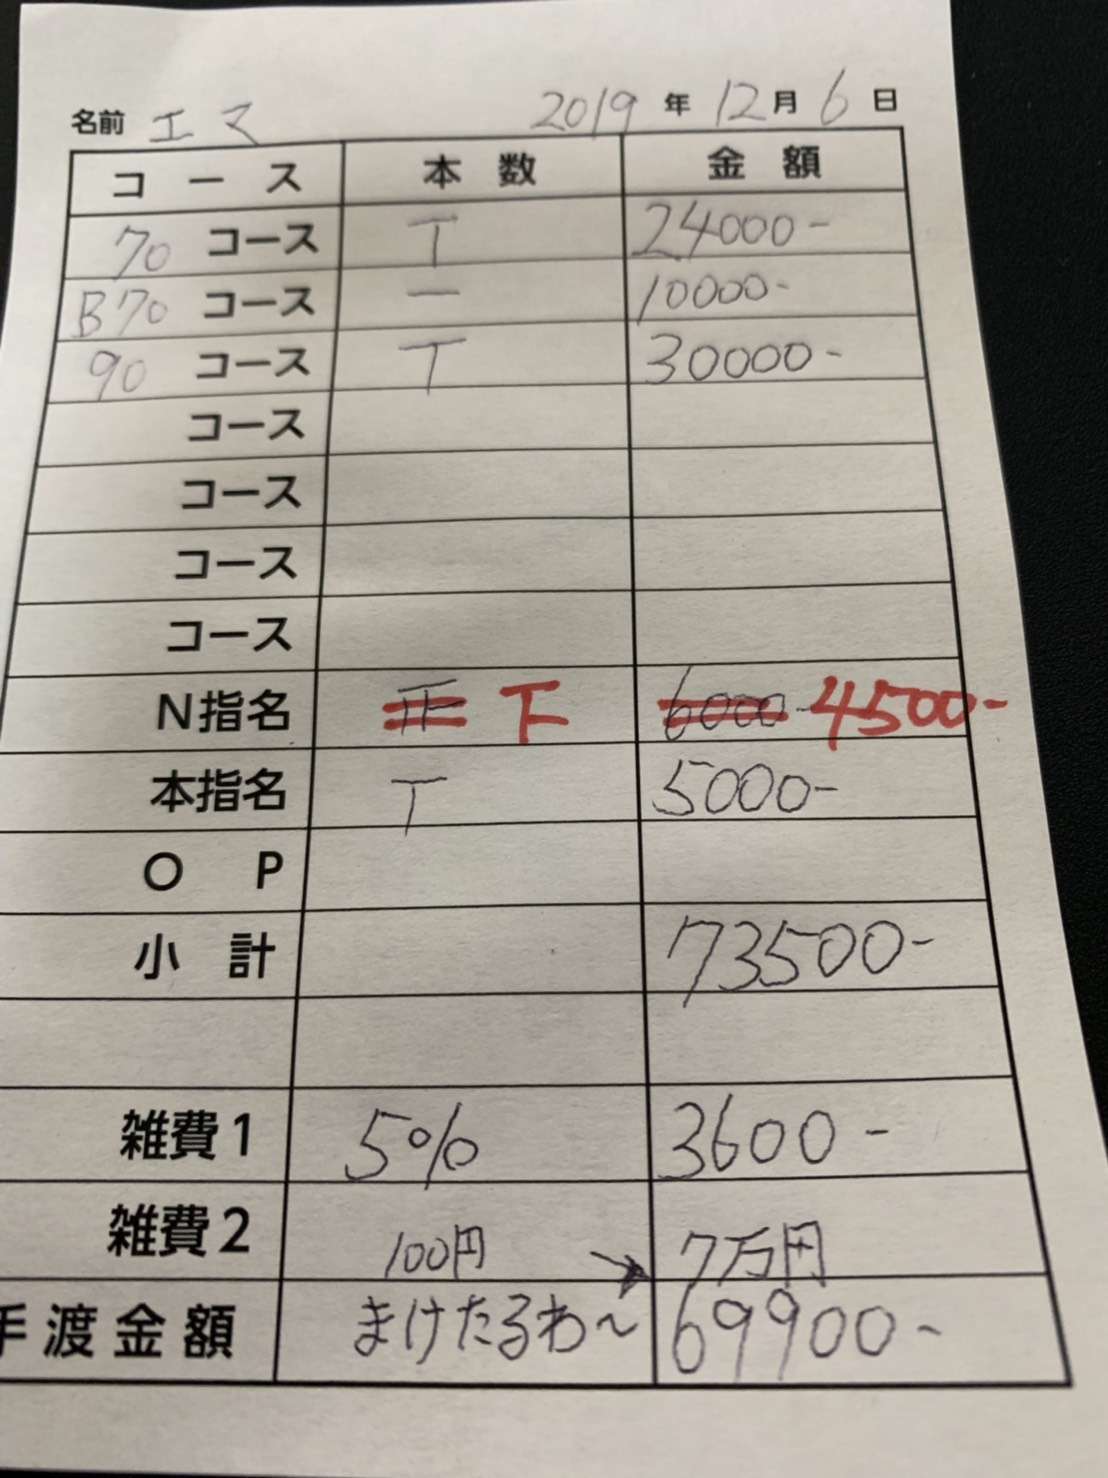 名前 エマ 2019年12月6日
コース 本数 金額
70 コース T 24000-
B70 コース 一 10000-
90 コース T 30000-
コース
コース
コース
コース
N指名 正 下 6000- 4500-
本指名 T 5000-
OP
小計 73500-
雑費1 5% 3600-
雑費2 100円 → 7万円
手渡金額 まけたるわ〜 69900-